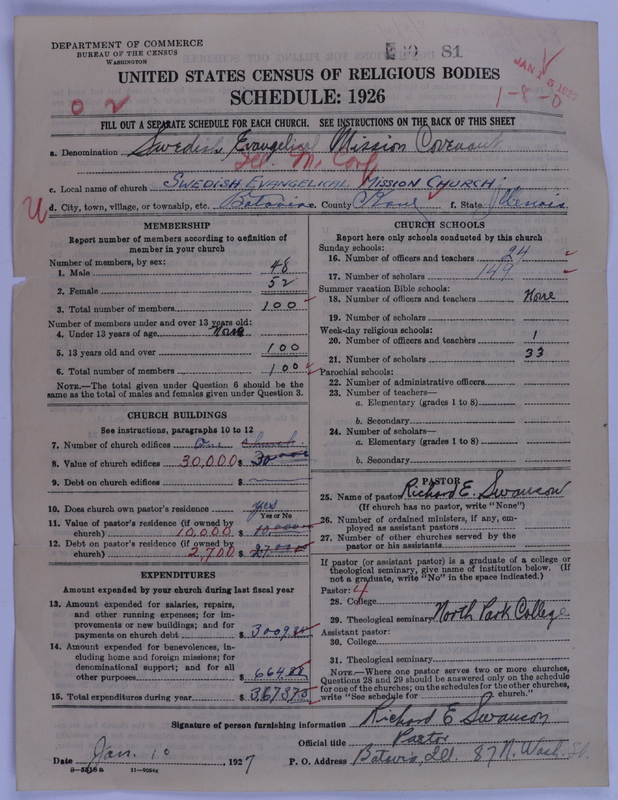 DEPARTMENT OF COMMERCE
BUREAU OF THE CENSUS
WASHINGTON
81
JAN 15 1927
1-8-0
UNITED STATES CENSUS OF RELIGIOUS BODIES
SCHEDULE: 1926
FILL OUT A SEPARATE SCHEDULE FOR EACH CHURCH. SEE INSTRUCTIONS ON THE BACK OF THIS SHEET
a. Denomination Swedish Evangelical Mission Covenant
c. Local name of church SWEDISH EVANGELICAL MISSION CHURCH.
d. City, town, village, or township, etc. Batavia County Kane f. State Illinois
MEMBERSHIP
Report number of members according to definition of
member in your church
Number of members, by sex:
1. Male 48
2. Female 52
3. Total number of members 100
Number of members under and over 13 years old:
4. Under 13 years of age None
5. 13 years old and over 100
6. Total number of members 100
NOTE.—The total given under Question 6 should be the
same as the total of males and females given under Question 3.
CHURCH BUILDINGS
See instructions, paragraphs 10 to 12
7. Number of church edifices One Church
8. Value of church edifices 30,000 $
9. Debt on church edifices $
10. Does church own pastor's residence yes
Yes or No
11. Value of pastor's residence (if owned by
church) 10,000 $
12. Debt on pastor's residence (if owned by
church) 2,700 $
EXPENDITURES
Amount expended by your church during last fiscal year
13. Amount expended for salaries, repairs,
and other running expenses; for im-
provements or new buildings; and for
payments on church debt $
14. Amount expended for benevolences, in-
cluding home and foreign missions; for
denominational support; and for all
other purposes $
15. Total expenditures during year $
CHURCH SCHOOLS
Report here only schools conducted by this church
Sunday schools:
16. Number of officers and teachers 24
17. Number of scholars 149
Summer vacation Bible schools:
18. Number of officers and teachers None
19. Number of scholars
Week-day religious schools:
20. Number of officers and teachers 1
21. Number of scholars 33
Parochial schools:
22. Number of administrative officers
23. Number of teachers—
a. Elementary (grades 1 to 8)
b. Secondary
24. Number of scholars—
a. Elementary (grades 1 to 8)
b. Secondary
PASTOR
25. Name of pastor Richard E. Swanson
(If church has no pastor, write "None")
26. Number of ordained ministers, if any, em-
ployed as assistant pastors
27. Number of other churches served by the
pastor or his assistants
If pastor (or assistant pastor) is a graduate of a college or
theological seminary, give name of institution below. (If
not a graduate, write "No" in the space indicated.)
Pastor: 4
28. College
29. Theological seminary North Park College
Assistant pastor:
30. College
31. Theological seminary
NOTE.—Where one pastor serves two or more churches,
Questions 28 and 29 should be answered only on the schedule
for one of the churches; on the schedules for the other churches,
write "See schedule for church."
Signature of person furnishing information Richard E Swanson
Official title Pastor
Date Jan. 10, 1927 P. O. Address Batavia, Ill. 87 N. Wash. St.
8-5318a 11-9094a